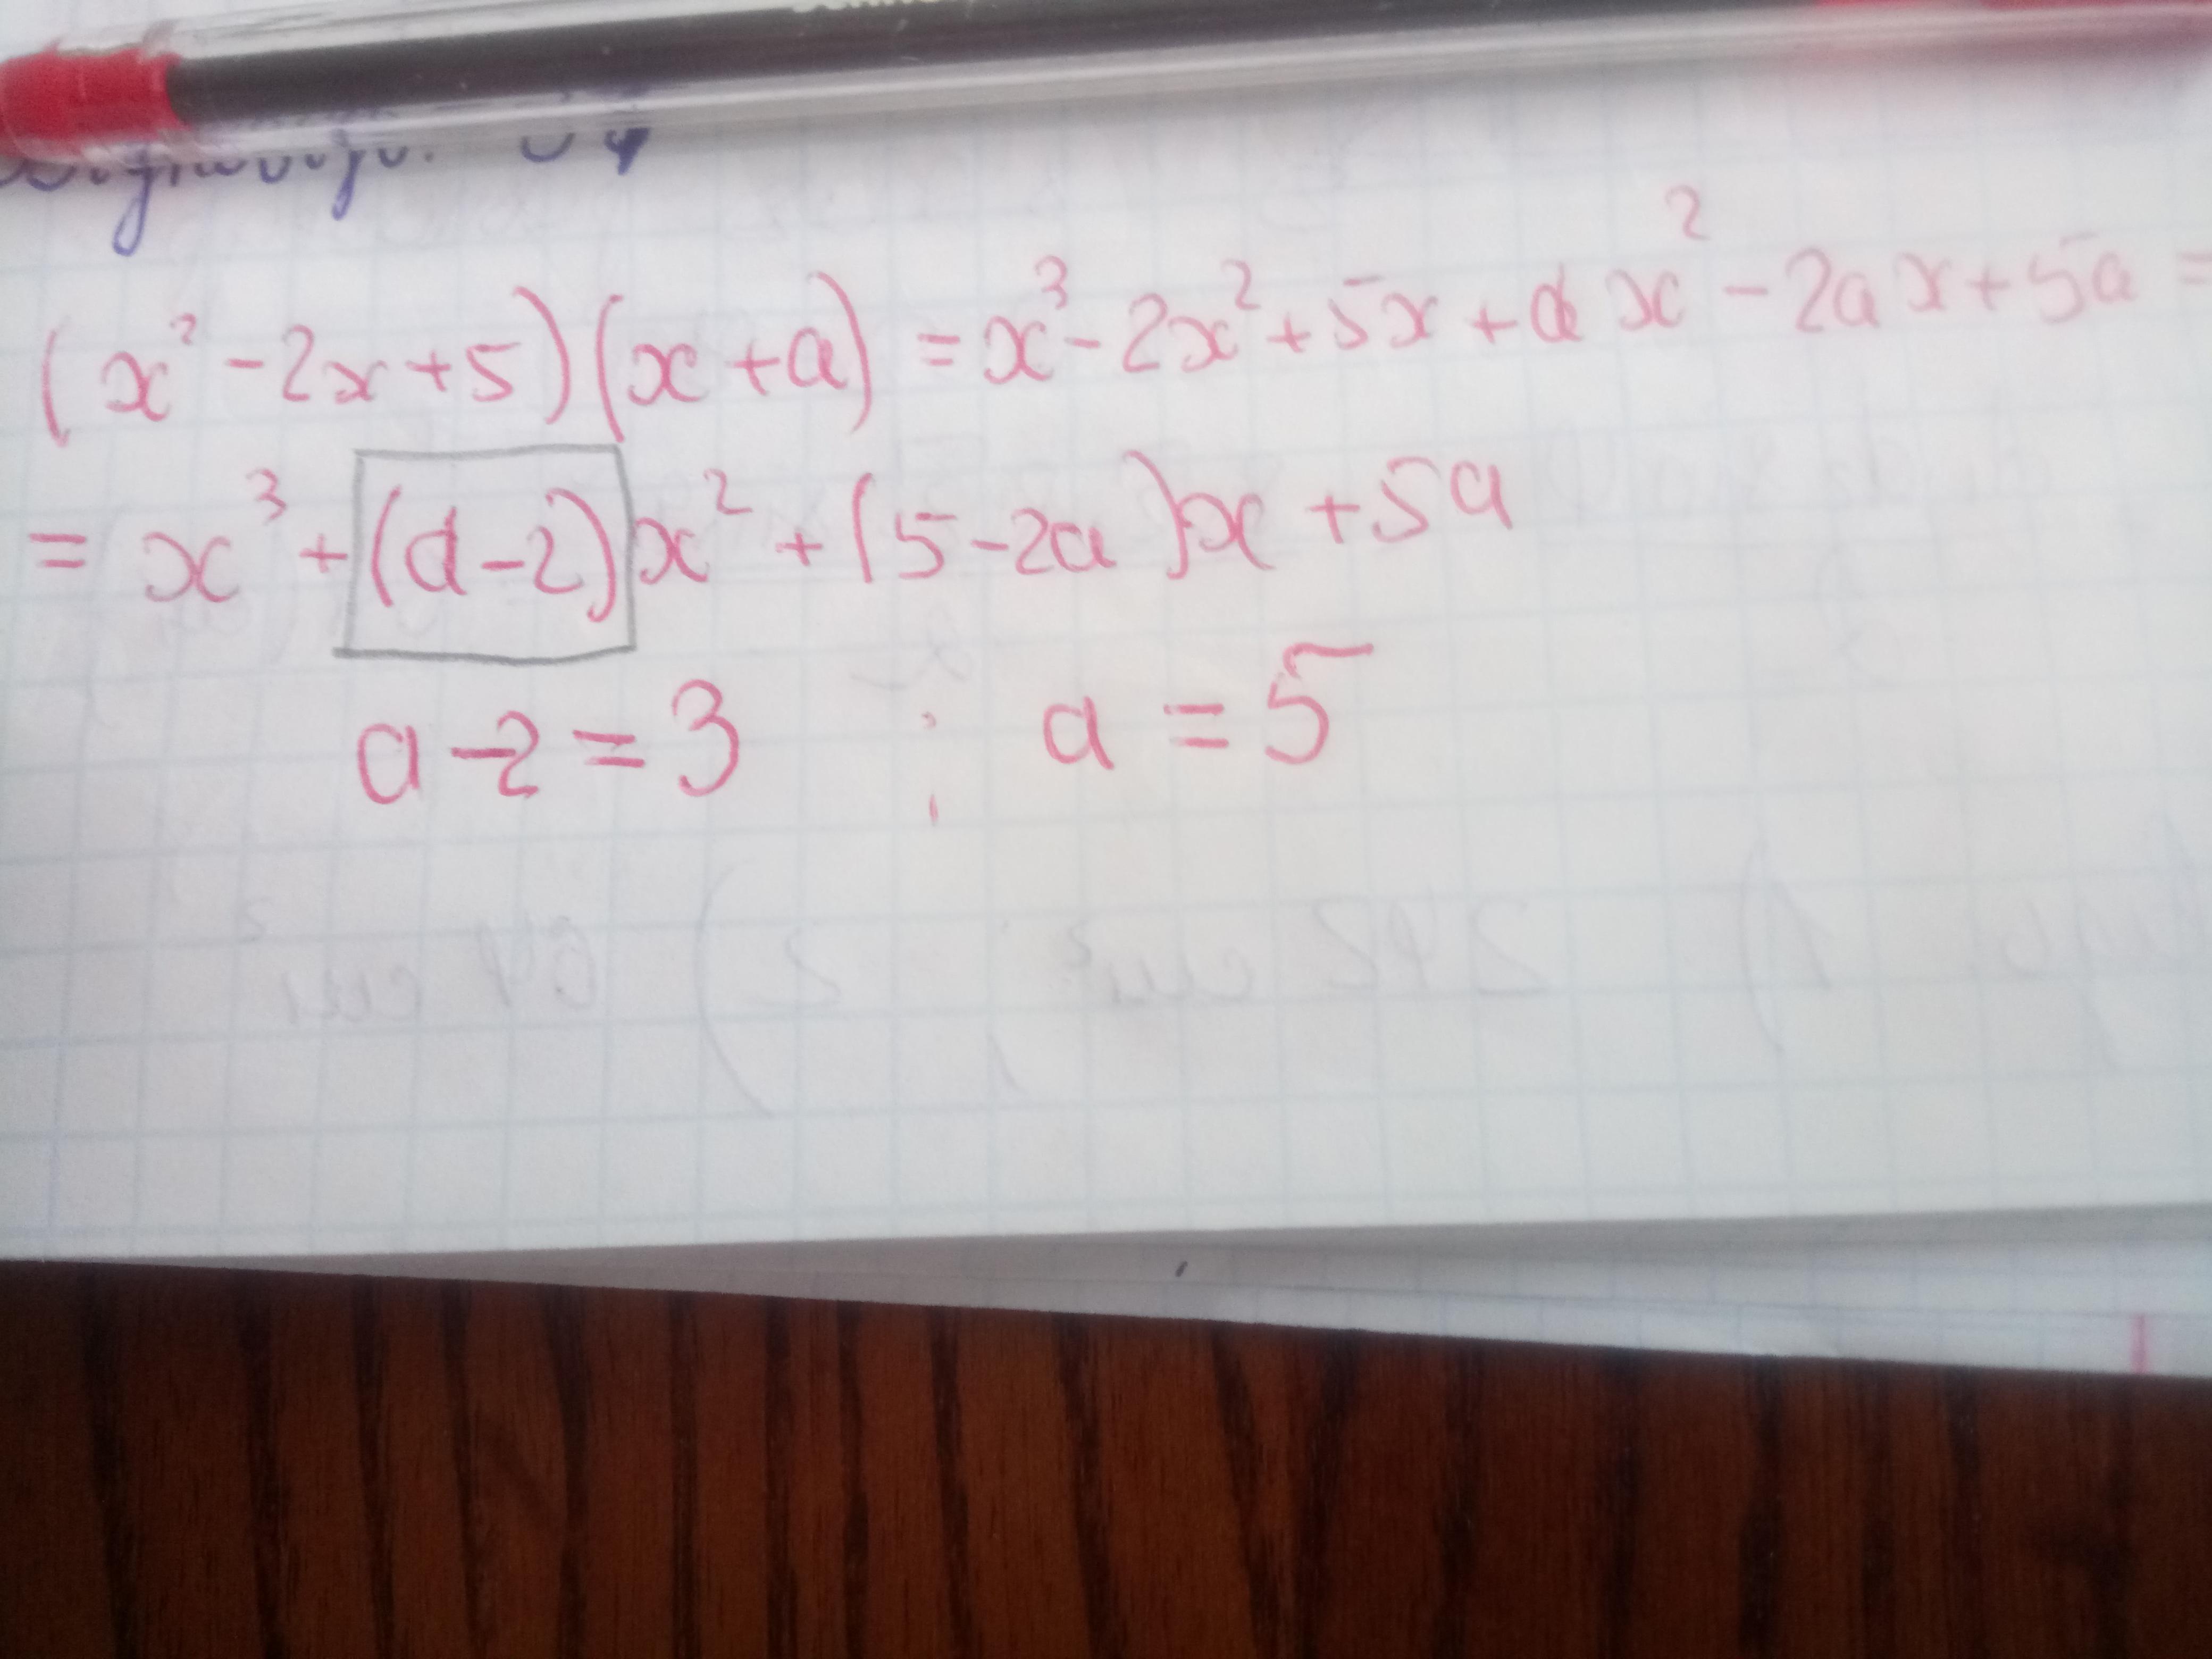 (x² - 2x + 5)(x + a) = x³ - 2x² + 5x + ax² - 2ax + 5a =
= x³ + (a - 2)x² + (5 - 2a)x + 5a
a - 2 = 3 ; a = 5